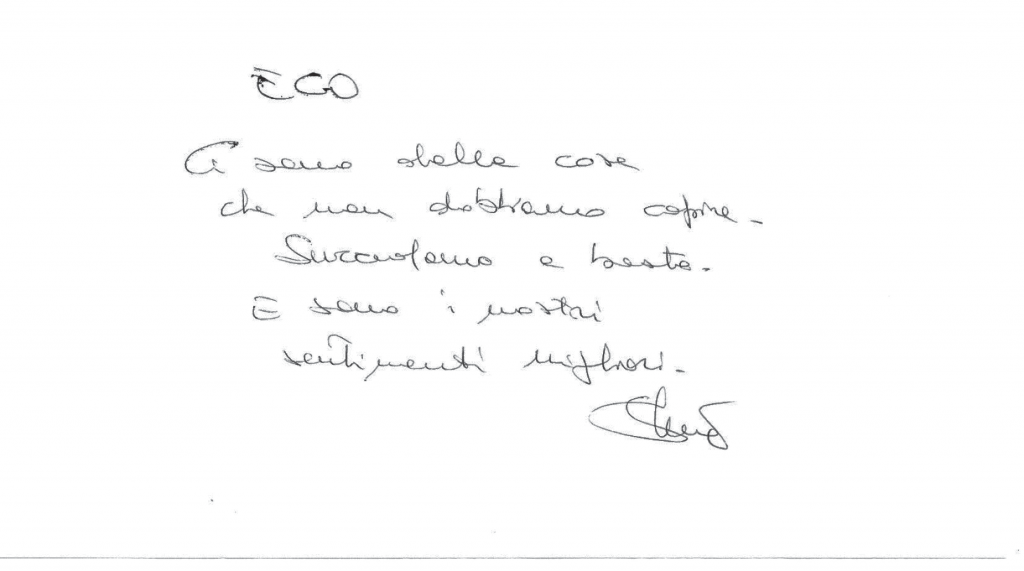 EGO
Ci sono delle cose
che non dobbiamo capire.
Succedono e basta.
E sono i nostri
sentimenti migliori.